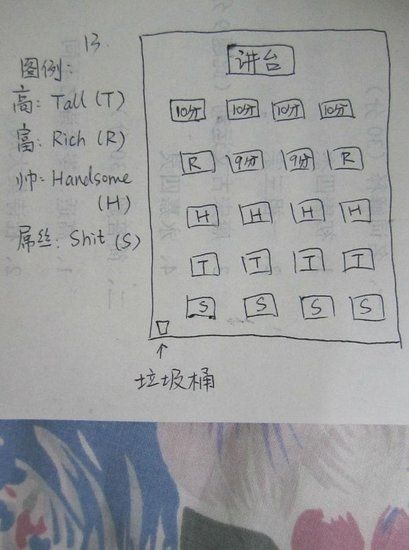 13.
图例:
高: Tall (T)
富: Rich (R)
帅: Handsome
(H)
屌丝: Shit (S)
讲台
10分 10分 10分 10分
R 9分 9分 R
H H H H
T T T T
S S S S
垃圾桶